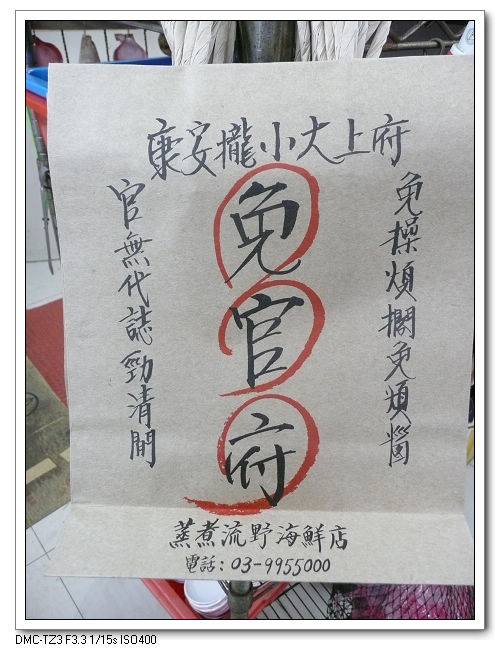 府上大小攏安康
免操煩擱免煩惱
免官府
官無代誌勁清閒
蒸煮流野海鮮店
電話:03-9955000
DMC-TZ3 F3.3 1/15s ISO400